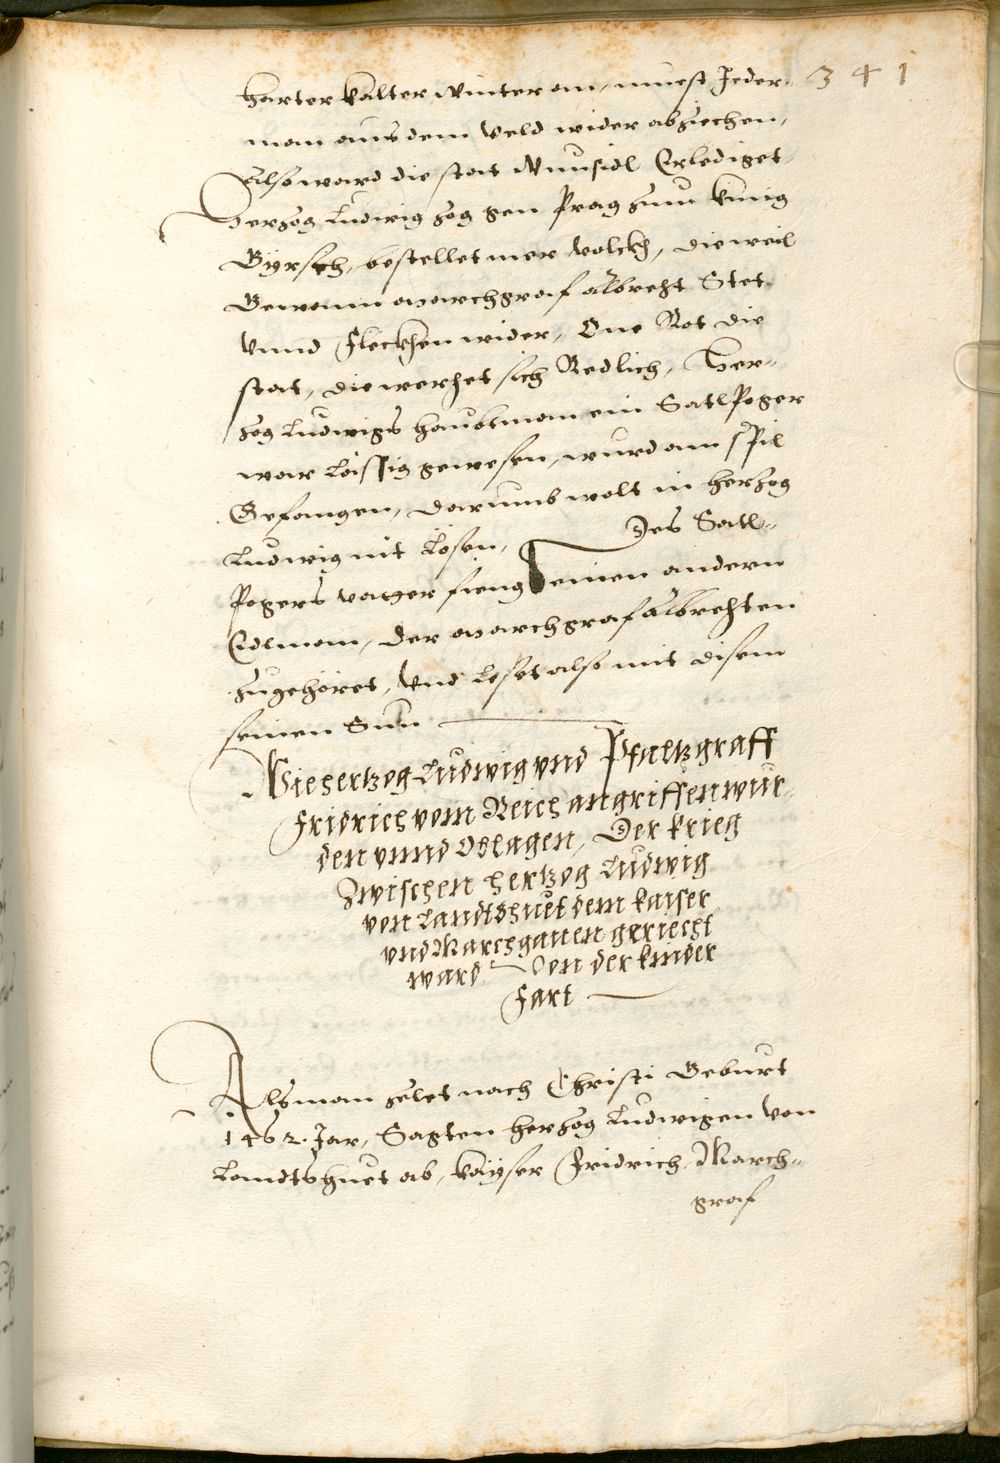 341
harter kalter winter an, muest Jeder-
man aus dem Veld wider abziechen,
Also ward die stat Wunsidl Erlediget,
Herzog Ludwig zog gen Prag zum Künig
Gÿrsch, bestellet mer Volckh, die weil
Gewann marchgraf Albreht Stet
Vnnd Fleckhen wider, One Rot die
stat, die werhet sich Redlich, Her-
zog Ludwigs haubtman ein SatlPoger
war Lässig gewesen, wurd am spil
Gefangen, darumb wolt in herzog
Ludwig nit Lösen, Des Satl-
Pogers vatter fieng einen andern
Edlman, der marchgraf Albrehten
zugehöret, Vnd Loset also mit disem
seinen Sun
Wie hertzog Ludwig vnd Pfaltzgraff
Fridrich vom Reich angriffen wur-
den vnnd Oblagen, Der krieg
Zwischen hertzog Ludwig
von Landtshuet dem kaiser
vnd Marchgauen gericht
ward Von der kinder
fart
Als man zelet nach Christi Geburt
1462. Jar, Sagten herzog Ludwigen von
Landtshuet ab, kaÿser Fridrich, March-
graf